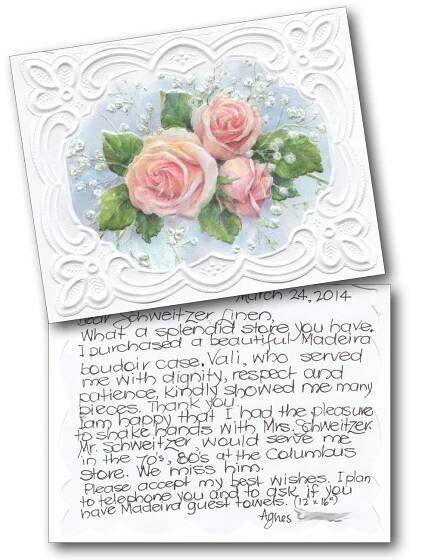 March 24, 2014
Dear Schweitzer Linen,
What a splendid store you have.
I purchased a beautiful Madeira
boudoir case. Vali, who served
me with dignity, respect and
patience, kindly showed me many
pieces. Thank you.
I am happy that I had the pleasure
to shake hands with Mrs. Schweitzer.
Mr. Schweitzer would serve me
in the 70's, 80's at the Columbus
store. We miss him.
Please accept my best wishes. I plan
to telephone you and to ask if you
have Madeira guest towels. (12"x16")
Agnes